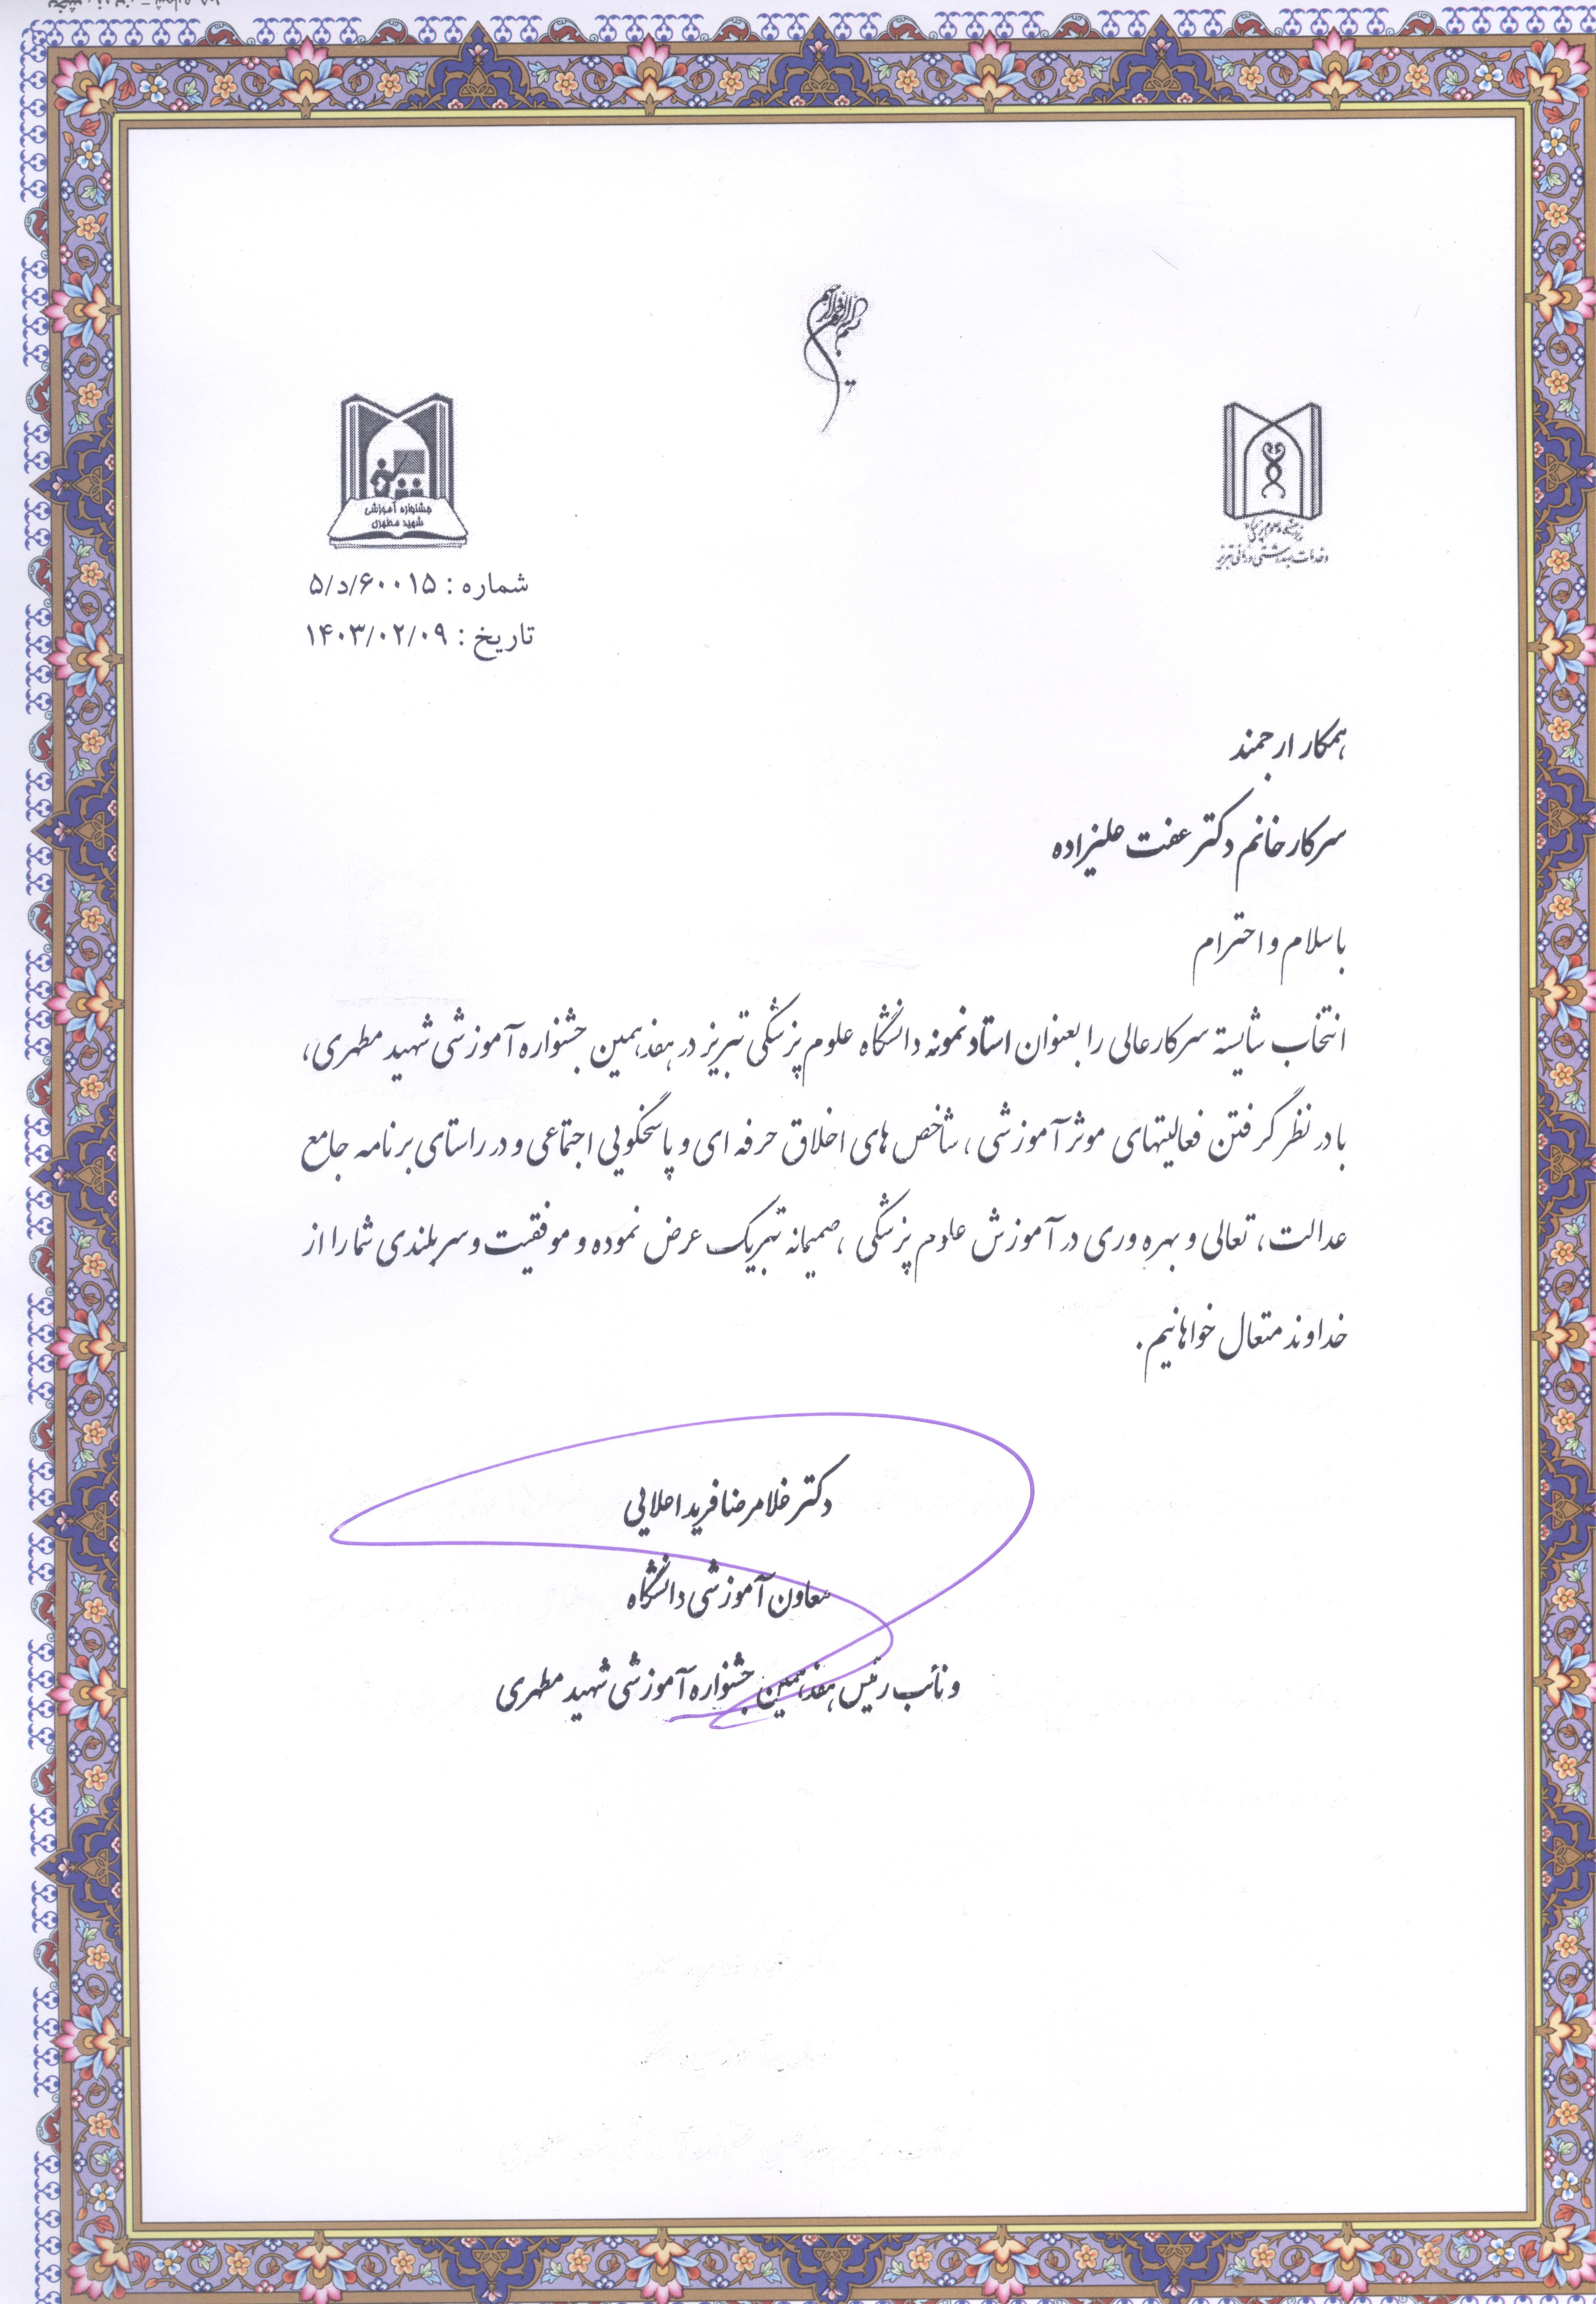 بسم الله الرحمن الرحیم
جشنواره آموزشی
شهید مطهری
دانشگاه علوم پزشکی
و خدمات بهداشتی درمانی تبریز
شماره : ۶۰۰۱۵/د/۵
تاریخ : ۱۴۰۳/۰۲/۰۹
همکار ارجمند
سرکار خانم دکتر عفت علیزاده
با سلام و احترام
انتخاب شایسته سرکارعالی را بعنوان استاد نمونه دانشگاه علوم پزشکی تبریز در هفدهمین جشنواره آموزشی شهید مطهری،
با در نظر گرفتن فعالیتهای موثر آموزشی ، شاخص های اخلاق حرفه ای و پاسخگویی اجتماعی و در راستای برنامه جامع
عدالت ، تعالی و بهره وری در آموزش علوم پزشکی ، صمیمانه تبریک عرض نموده و موفقیت و سربلندی شما را از
خداوند متعال خواهانیم.
دکتر غلامرضا فرید اعلایی
معاون آموزشی دانشگاه
و نائب رئیس هفدهمین جشنواره آموزشی شهید مطهری